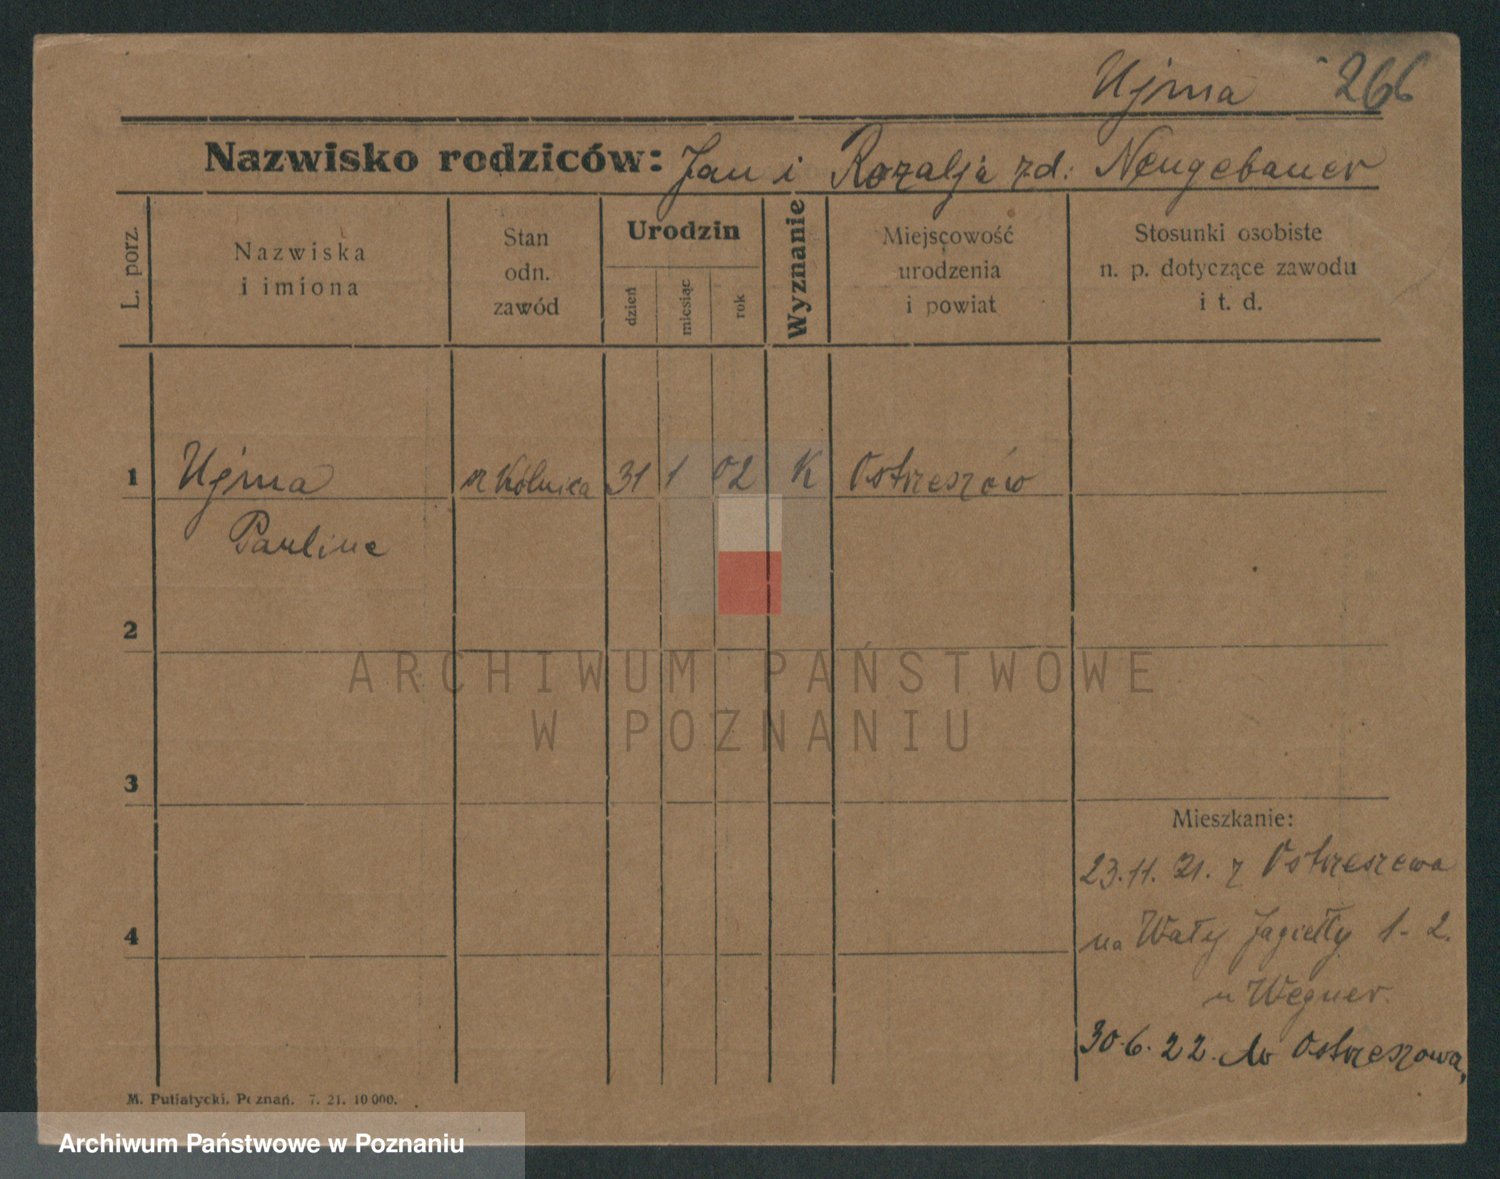 Ujma 266
Nazwisko rodziców: Jan i Rozalja zd: Neugebauer
L. porz.
Nazwiska
i imiona
Stan
odn.
zawód
Urodzin
dzień
miesiąc
rok
Wyznanie
Miejscowość
urodzenia
i powiat
Stosunki osobiste
n. p. dotyczące zawodu
i t. d.
1 Ujma 31 1 02 K Ostrzeszów
Paulina
2
3
4
Mieszkanie:
23.11.21. z Ostrzeszewa
na Wały Jagiełły 1-2.
u Wegner.
30.6.22. do Ostrzeszowa,
M. Putiatycki, Poznań. 7. 21. 10 000.
ARCHIWUM PAŃSTWOWE
W POZNANIU
Archiwum Państwowe w Poznaniu